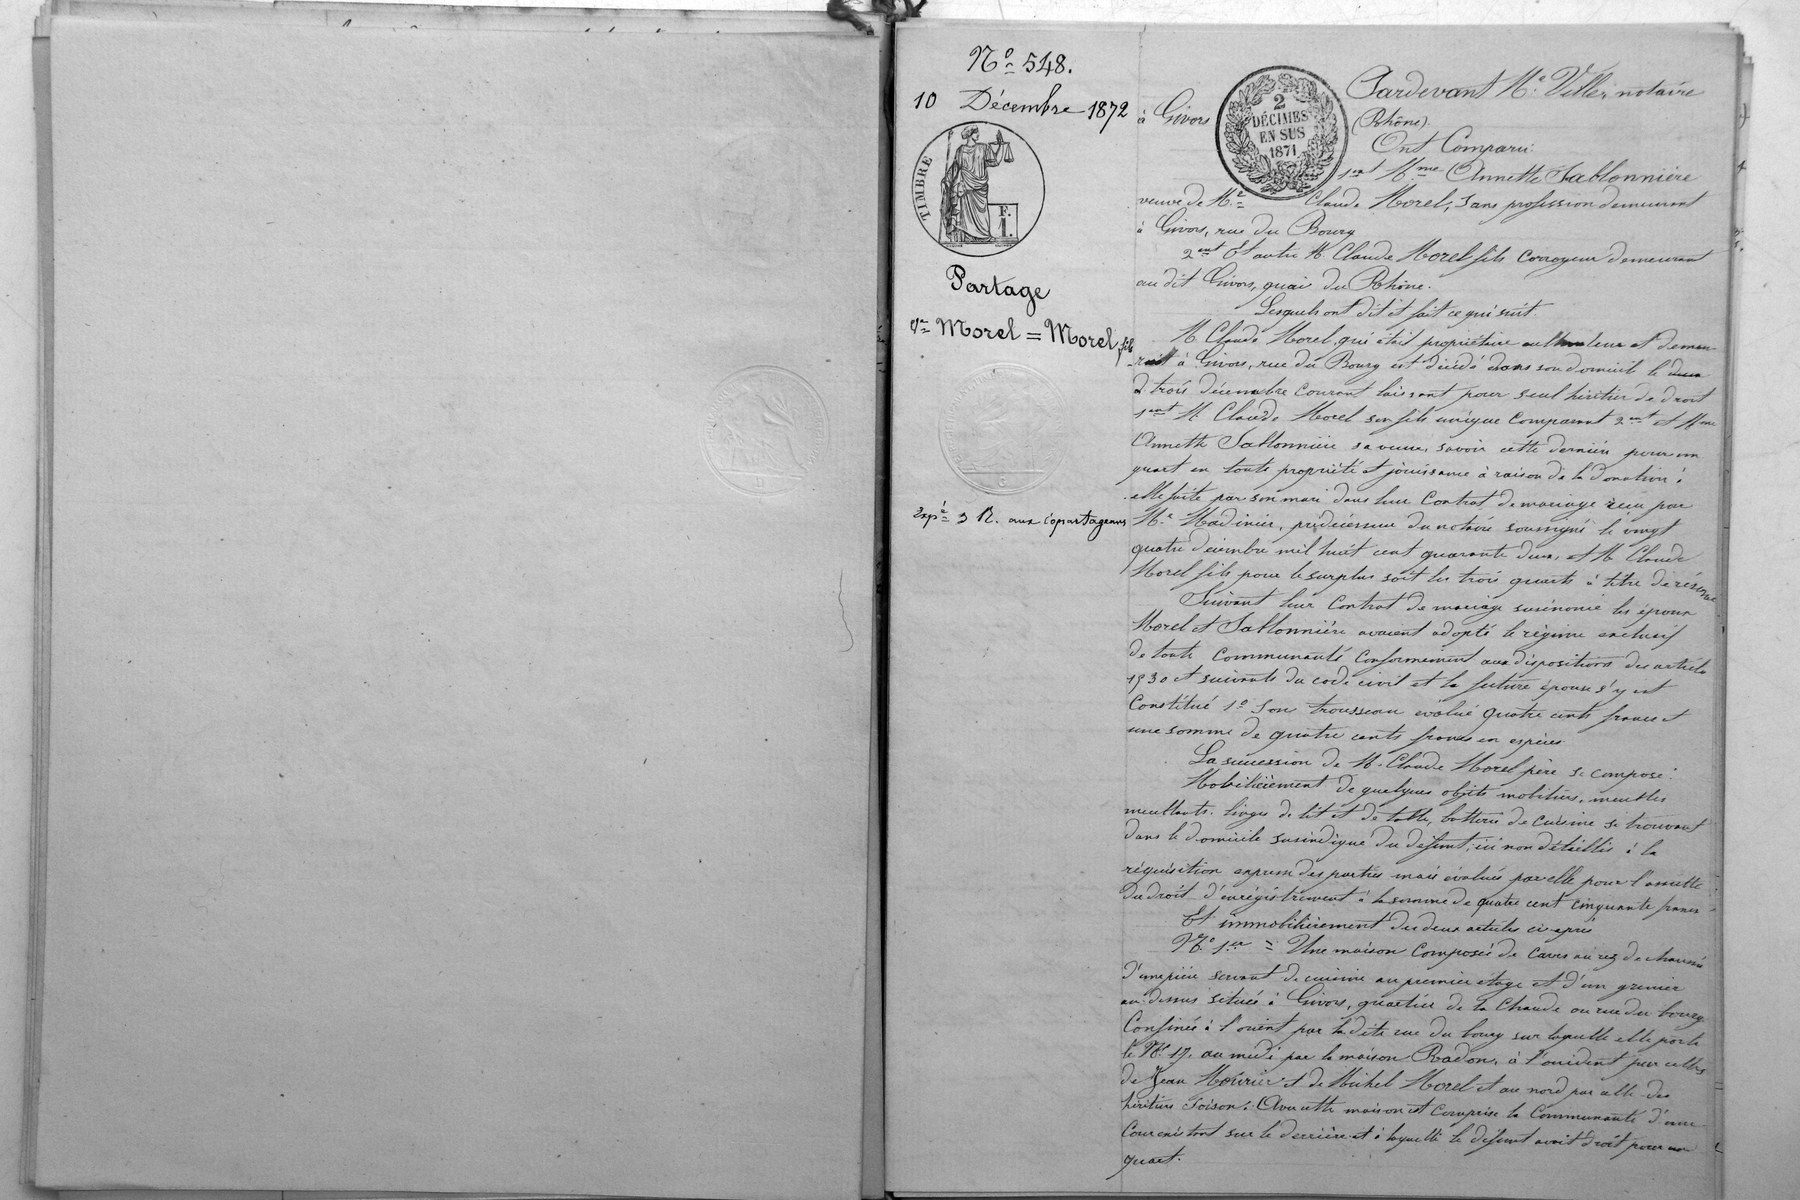 N° 548.
10 Décembre 1872
TIMBRE
F.
1.
Partage
Vve Morel = Morel fils
Expé 3 R. aux copartageans
2
DÉCIMES
EN SUS
1871
Pardevant Me Veller notaire
à Givors (Rhône).
Ont Comparu:
1ent Mme Annette Sablonnière
veuve de Mr Claude Morel, sans profession demeurant
à Givors, rue du Bourg
2ent Et autre M. Claude Morel fils corroyeur demeurant
au dit Givors, quai du Rhône.
Lesquels ont dit et fait ce qui suit
M. Claude Morel, qui était propriétaire cultivateur et demeu-
-rait à Givors, rue du Bourg est décédé dans son domicile le deux
à trois décembre courant laissant pour seul héritier de droit
1ent M. Claude Morel son fils unique comparant 2ent et Mme
Annette Sablonnière sa veuve, savoir cette dernière pour un
quart en toute propriété et jouissance à raison de la donation à
elle faite par son mari dans leur contrat de mariage reçu par
Me Madinier, prédécesseur du notaire soussigné le vingt
quatre décembre mil huit cent quarante deux, et M. Claude
Morel fils pour le surplus soit les trois quarts à titre de réserve
Suivant leur contrat de mariage susénoncé les époux
Morel et Sablonnière avaient adopté le régime exclusif
de toute communauté conformément aux dispositions des articles
1530 et suivants du code civil et la future épouse s'y est
constitué 1° son trousseau évalué quatre cents francs et
une somme de quatre cents francs en espèces.
La succession de M. Claude Morel père se compose:
Mobilièrement de quelques objets mobiliers, meubles
meublants, linges de lit et de table, batterie de cuisine se trouvant
dans le domicile susindiqué du défunt, ici non détaillés à la
réquisition expresse des parties mais évalués par elle pour l'assiette
du droit d'enrégistrement à la somme de quatre cent cinquante francs
Et immobilièrement des deux articles ci-après
N° 1er = Une maison composée de caves au rez de chaussée
d'une pièce servant de cuisine au premier étage et d'un grenier
au-dessus située à Givors, quartier de la Chaude ou rue du bourg
Confinée à l'orient par la dite rue du bourg sur laquelle elle porte
le N° 17, au midi par la maison Radon, à l'occident par celles
de Jean Mourier et de Michel Morel et au nord par celle des
héritiers Toison. Avec cette maison est comprise la communauté d'une
cour existant sur le derrière et à laquelle le défunt avait droit pour un
quart.